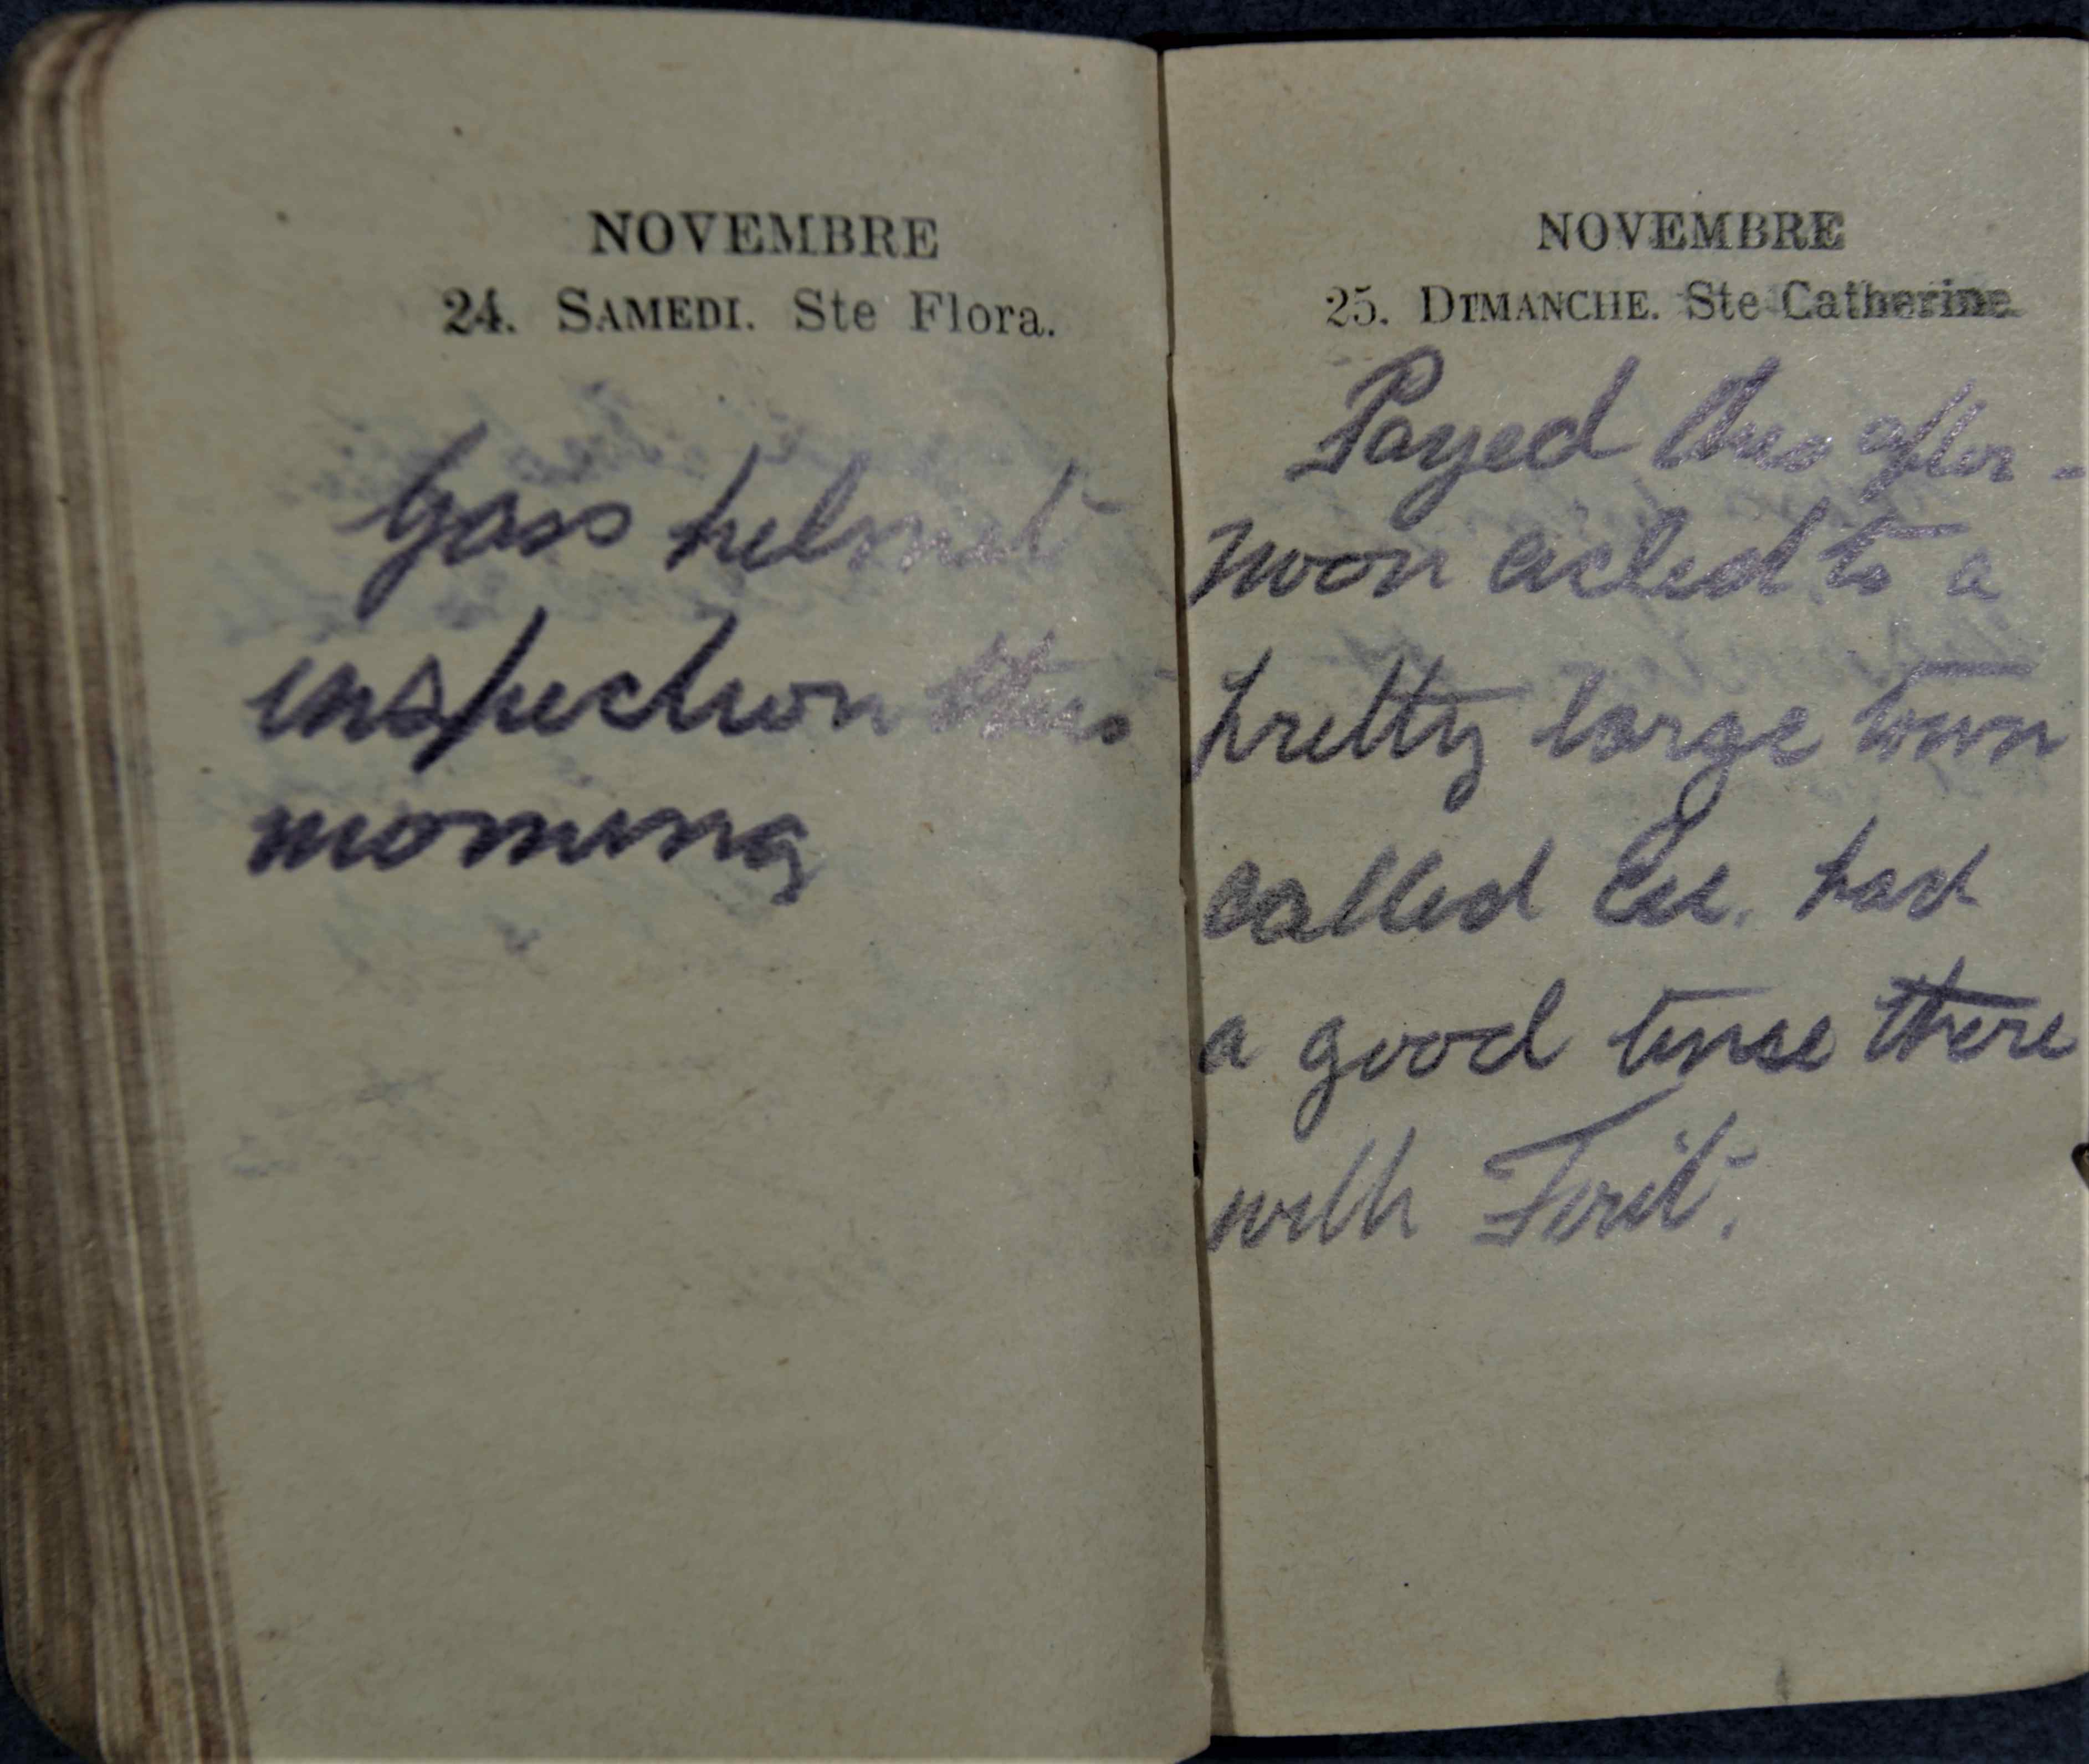 NOVEMBRE
24. SAMEDI. Ste Flora.
Gass helmet
inspection this
morning
NOVEMBRE
25. DIMANCHE. Ste Catherine
Payed this after -
noon cicled to a
pretty large town
called Eu. had
a good time there
with